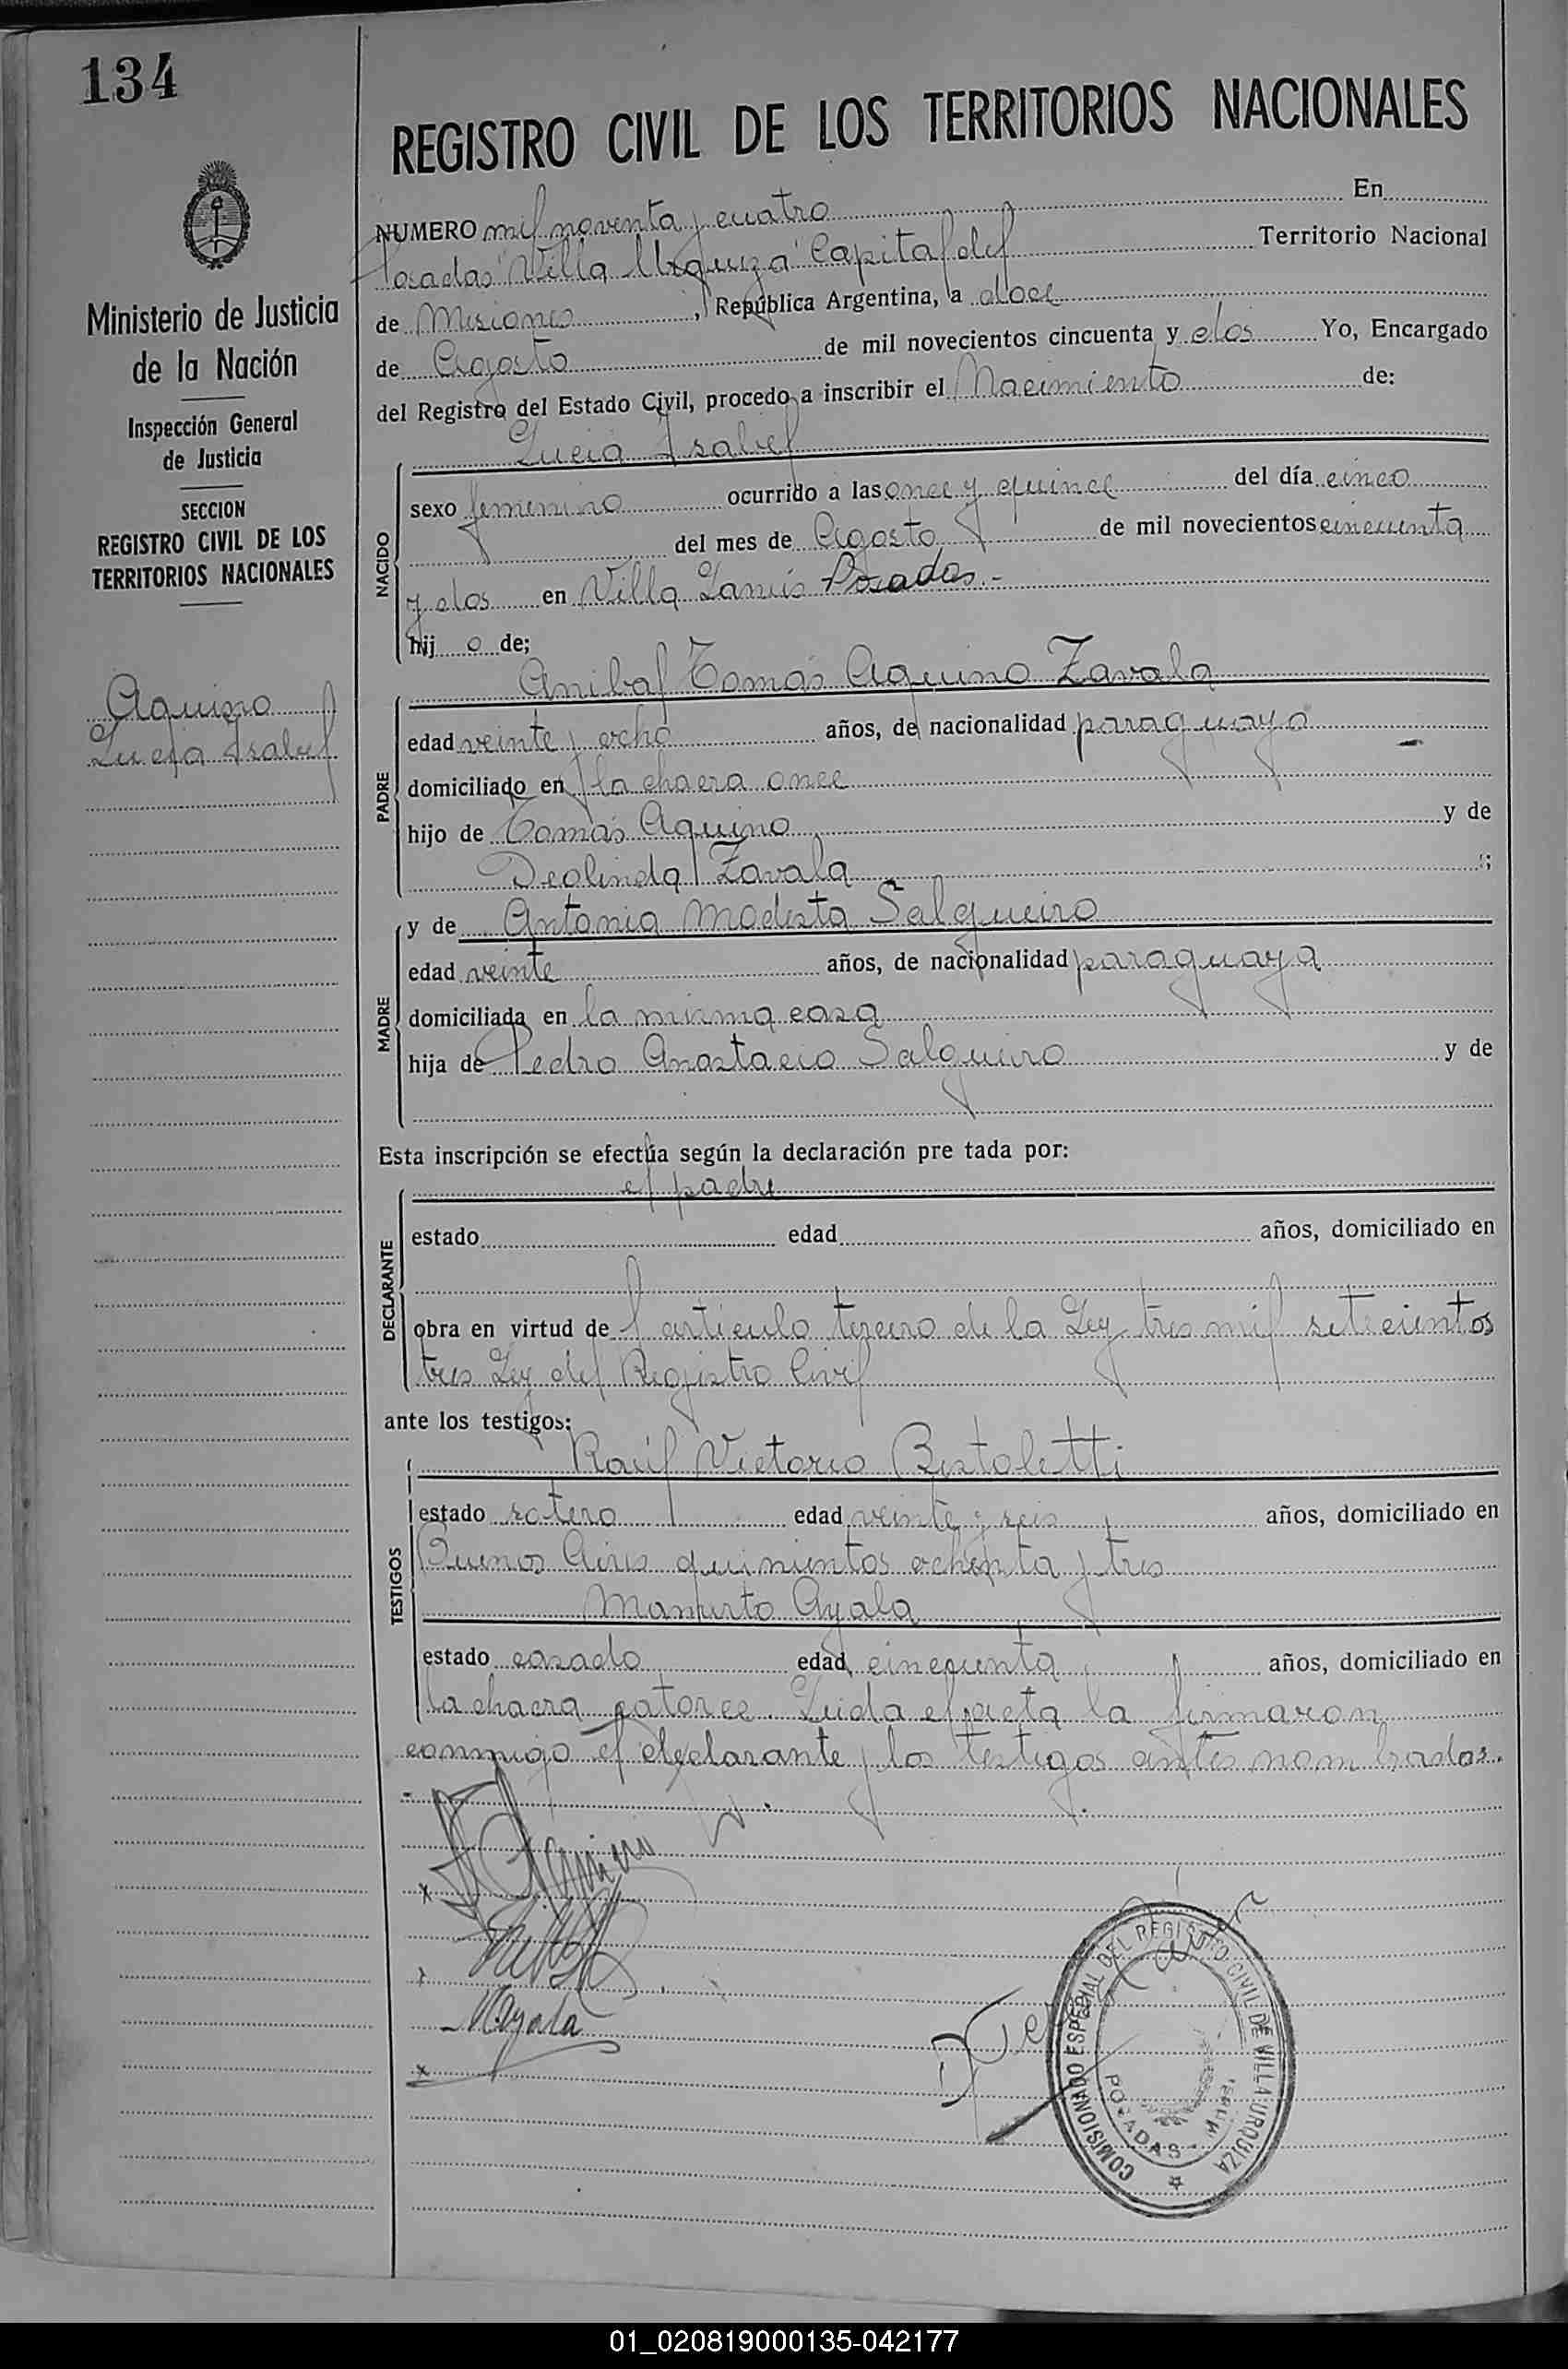 134
REGISTRO CIVIL DE LOS TERRITORIOS NACIONALES
Ministerio de Justicia
de la Nación
Inspección General
de Justicia
SECCION
REGISTRO CIVIL DE LOS
TERRITORIOS NACIONALES
Aquino
Lucia Isabel
NUMERO mil noventa y cuatro En
Posadas "Villa Urquiza" Capital del Territorio Nacional
de Misiones, República Argentina, a doce
de Agosto de mil novecientos cincuenta y dos Yo, Encargado
del Registro del Estado Civil, procedo a inscribir el Nacimiento de:
Lucia Isabel
NACIDO
sexo femenino ocurrido a las once y quince del día cinco
del mes de Agosto de mil novecientos cincuenta
y dos en Villa Lanús Posadas.-
hij o de;
PADRE
Anibal Tomás Aquino Zavala
edad veinte y ocho años, de nacionalidad paraguayo
domiciliado en la chacra once
hijo de Tomás Aquino y de
Deolinda Zavala ;
MADRE
y de Antonia Modesta Salgueiro
edad veinte años, de nacionalidad paraguaya
domiciliada en la misma casa
hija de Pedro Anastacio Salgueiro y de
Esta inscripción se efectúa según la declaración pre tada por:
el padre
DECLARANTE
estado edad años, domiciliado en
obra en virtud de l articulo tercero de la Ley tres mil setecientos
tres Ley del Registro Civil
ante los testigos:
TESTIGOS
Raúl Victorio Bertoletti
estado sotero edad veinte y seis años, domiciliado en
Buenos Aires quinientos ochenta y tres
Ayala
estado casado edad cincuenta años, domiciliado en
la chacra catorce. Leida el acta la firmaron
conmigo el declarante y los testigos antes nombrados.
Mayala
COMISIONADO ESPECIAL DEL REGISTRO CIVIL DE VILLA URQUIZA
POSADAS - Mnes.
01_020819000135-042177